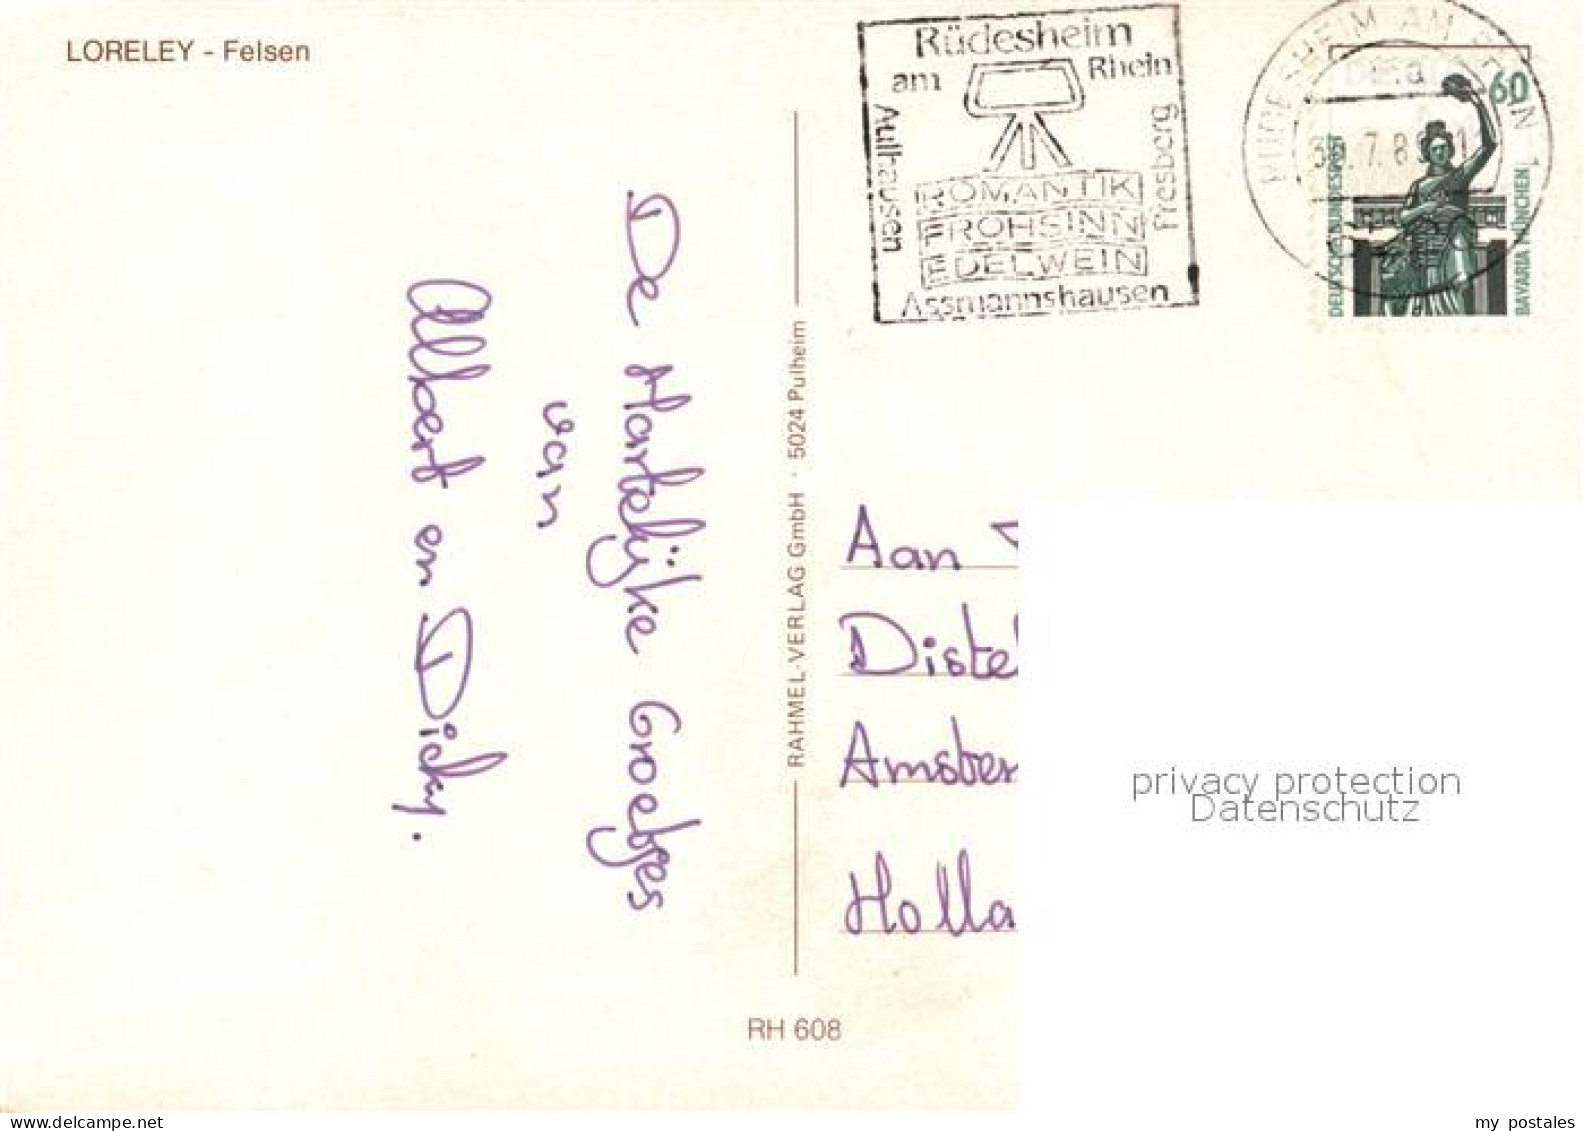 LORELEY - Felsen
Rüdesheim
am Rhein
Aulhausen
Presberg
ROMANTIK
FROHSINN
EDELWEIN
Assmannshausen
RÜDESHEIM AM RHEIN 1
60
DEUTSCHE BUNDESPOST
BAVARIA MÜNCHEN
De Hartelijke Groetjes
van
Albert en Dicky.
RAHMEL-VERLAG GmbH · 5024 Pulheim
Aan
Distel
Amster
Holla
privacy protection
Datenschutz
RH 608
my postales